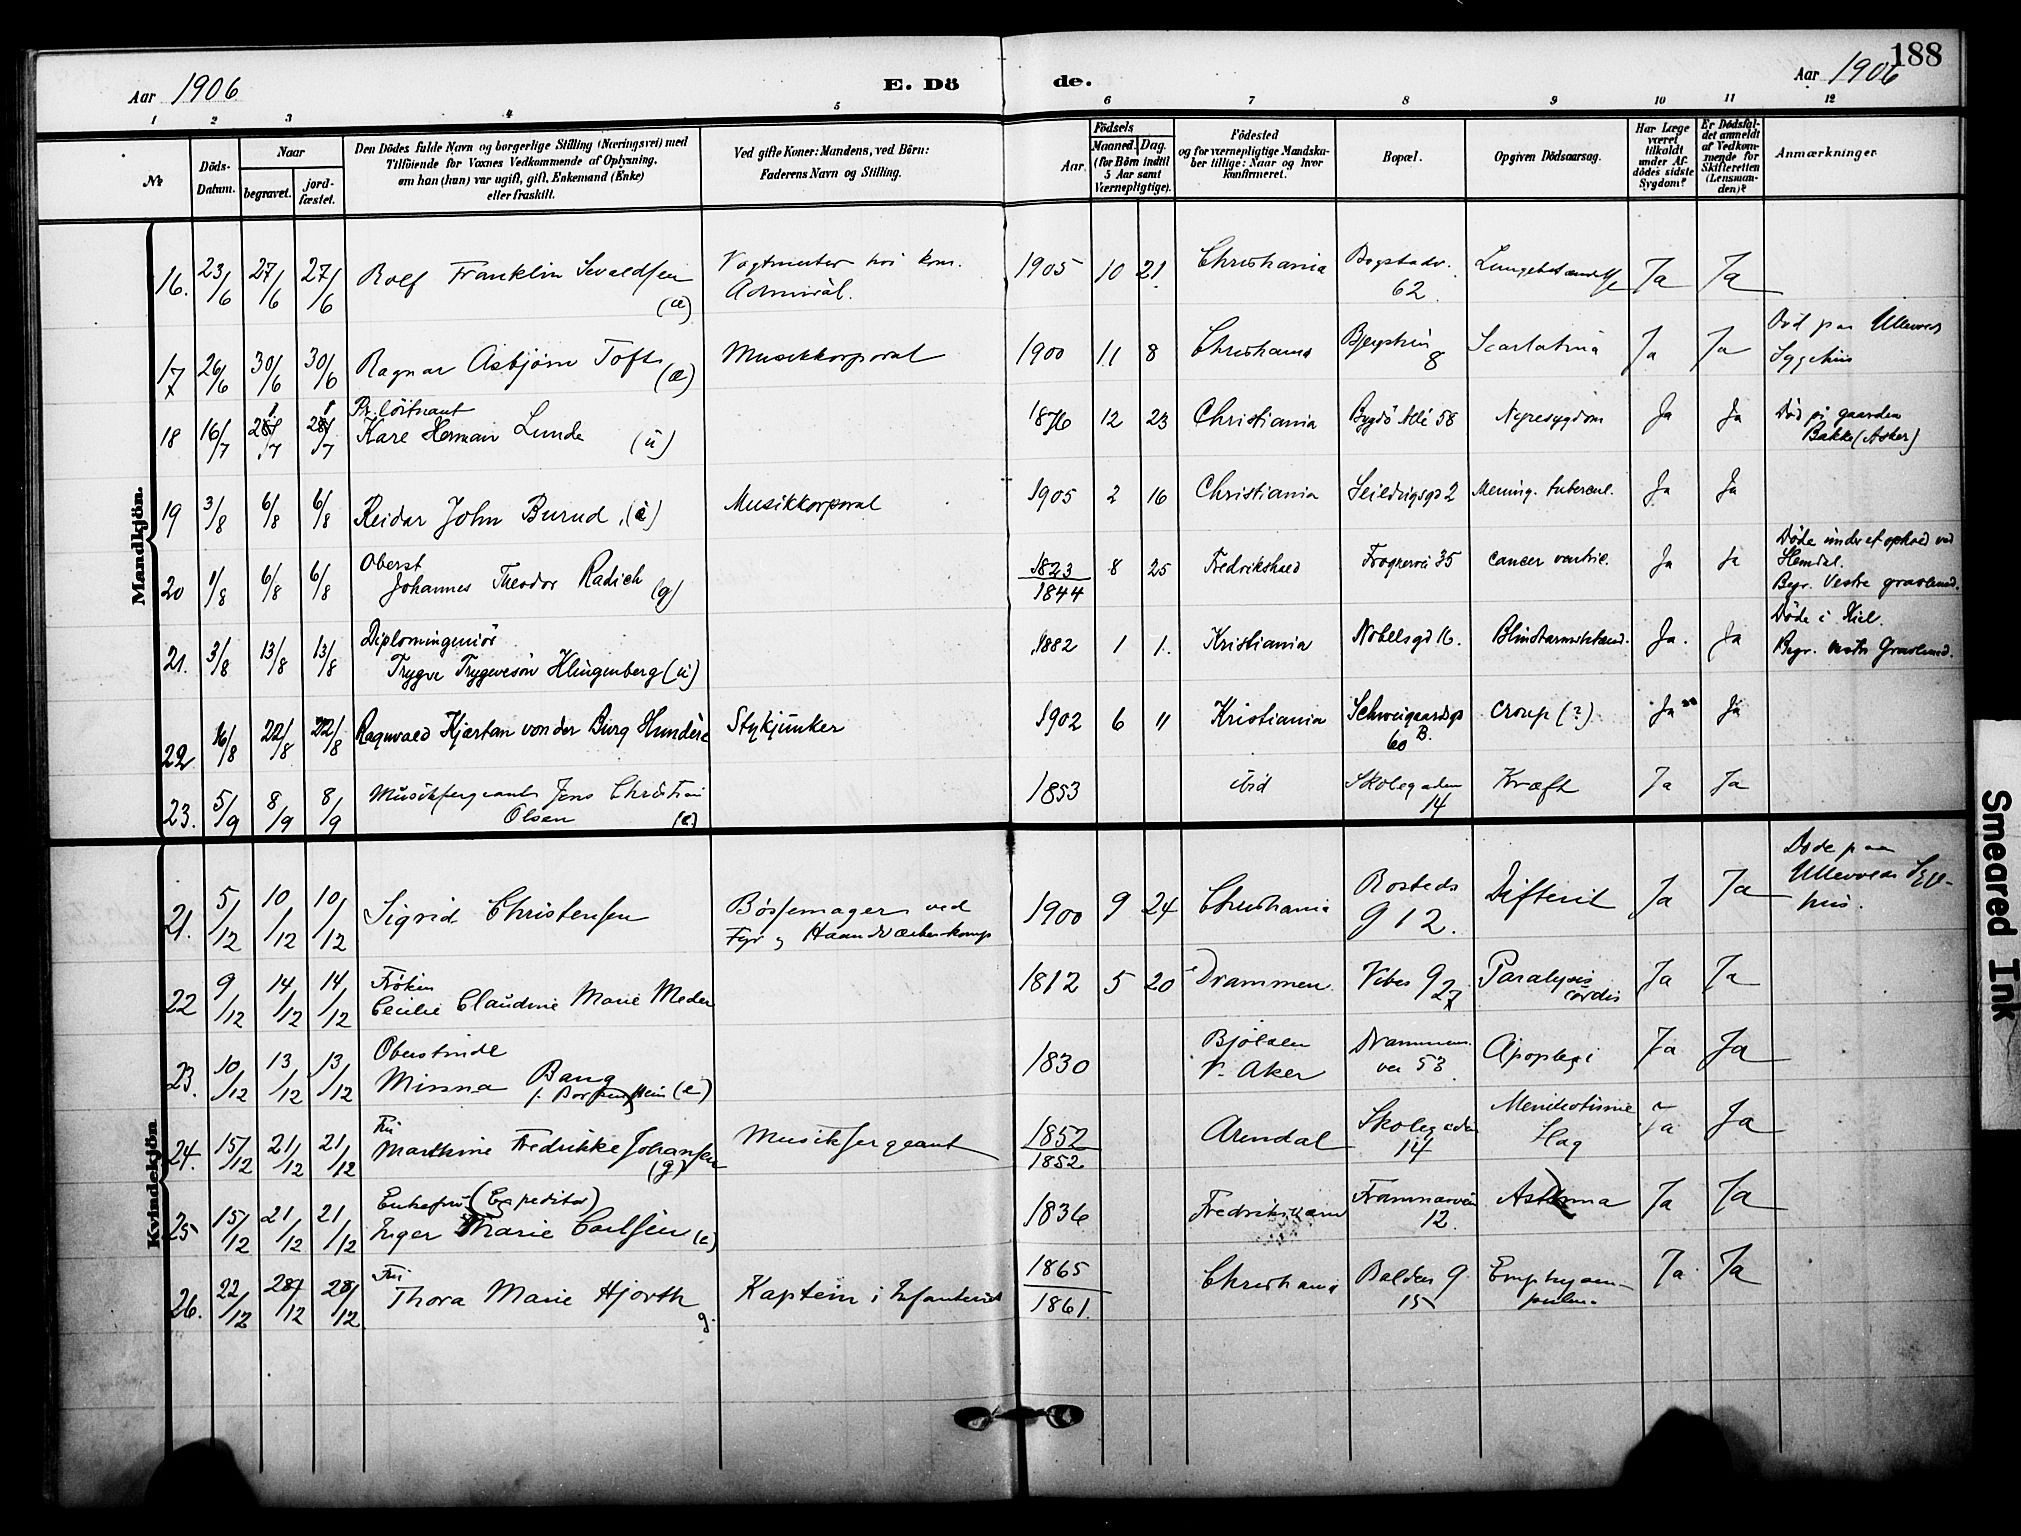 188
Aar 1906
E. Dö de.
Aar 1906
1 2 3 4 5 6 7 8 9 10 11 12
№
Döds-Datum.
Naar
begravet.
jord-fæstet.
Den Dödes fulde Navn og borgerlige Stilling (Næringsvei) med
Tilföiende for Voxnes Vedkommende af Oplysning,
om han (hun) var ugift, gift, Enkemand (Enke)
eller fraskilt.
Ved gifte Koner: Mandens, ved Börn:
Faderens Navn og Stilling.
Födsels
Aar.
Maaned. Dag.
(for Børn indtil
5 Aar samt
Værnepligtige).
Födested
og for værnepligtige Mandska-
ber tillige: Naar og hvor
konfirmeret.
Bopæl.
Opgiven Dödsaarsag.
Har Læge
været
tilkaldt
under Af-
dödes sidste
Sygdom?
Er Dödsfal-
det anmeldt
af Vedkom-
mende for
Skifteretten
(Lensman-
den)?
Anmærkninger
Mandkjön.
16. 23/6 27/6 27/6 Rolf Franklin Sevaldsen (æ) Vogtmester kom. Admiral. 1905 10 21 Christiania Bogstadv. 62. Lungebetændelse Ja Ja
17 26/6 30/6 30/6 Ragnar Asbjørn Tofte (æ) Musikkorporal 1900 11 8 Christiania 8 Scarlatina Ja Ja Død paa Ullevold Sygehus
18 16/7 Pr. löitnant Kare Herman Lunde (u) 1876 12 23 Christiania Bygdö Allé 58 Nyresygdom Ja Ja Död på gaarden Bakke (Asker)
19 3/8 6/8 6/8 Reidar John Burud. (æ) Musikkorporal 1905 2 16 Christiania 2 Mening. tubercul. Ja Ja
20 1/8 6/8 6/8 Oberst Johannes Theodor Radich (g) 1823 / 1844 8 25 Fredrikshald Frognervei 35 cancer ventric. Ja Ja Döde under et ophold ved Hemdal. Begr. Vestre gravlund.
21. 3/8 13/8 13/8 Diplomingeniör Trygve Trygvesön Klingenberg (u) 1882 1 1. Kristiania Nobelsgd 16. Blindtarmsbetænd. Ja. Ja Döde i Kiel. Begr. vestre Gravlund.
22 16/8 22/8 22/8 Ragnvald Kjartan von der Burg Hundere Stykjunker 1902 6 11 Kristiania Schweigaardsgd 60 B. Croup (?) Ja Ja
23. 5/9 8/9 8/9 Musiksergeant Jens Christian Olsen (e) 1853 Skolegaden 14 Kræft Ja Ja
Kvindekjön
21. 5/12 10/12 10/12 Sigrid Christensen Bøssemager ved Fyr og Haandværkerkomp 1900 9 24 Christiania Rosteds g 12. Difterit Ja Ja Døde paa Ullevolds Syge-hus.
22 9/12 14/12 14/12 Frøken Cecilie Claudine Marie Meder 1812 5 20 Drammen Vibes g 27 Paralysis cordis Ja Ja
23. 10/12 13/12 13/12 Oberstinde Minna Bang (e) 1830 Bjølsen V. Aker Drammens vei 53 Apoplexi Ja Ja
24. 15/12 21/12 21/12 Fru Marthine Fredrikke Johansen (g) Musiksergeant 1852 / 1852 Arendal Skolegaden 14 Slag Ja Ja
25 15/12 21/12 21/12 Enkefru (Expeditør) Inger Marie Carlsen (e) 1836 Fredriksværn Framnæsvein 12. Asthma Ja Ja
26. 22/12 28/12 28/12 Fru Thora Marie Hjorth g. Kaptein i Infanteriet 1865 / 1861. Christiania Balders g 15 Emphysem pulm. Ja Ja
Smeared Ink